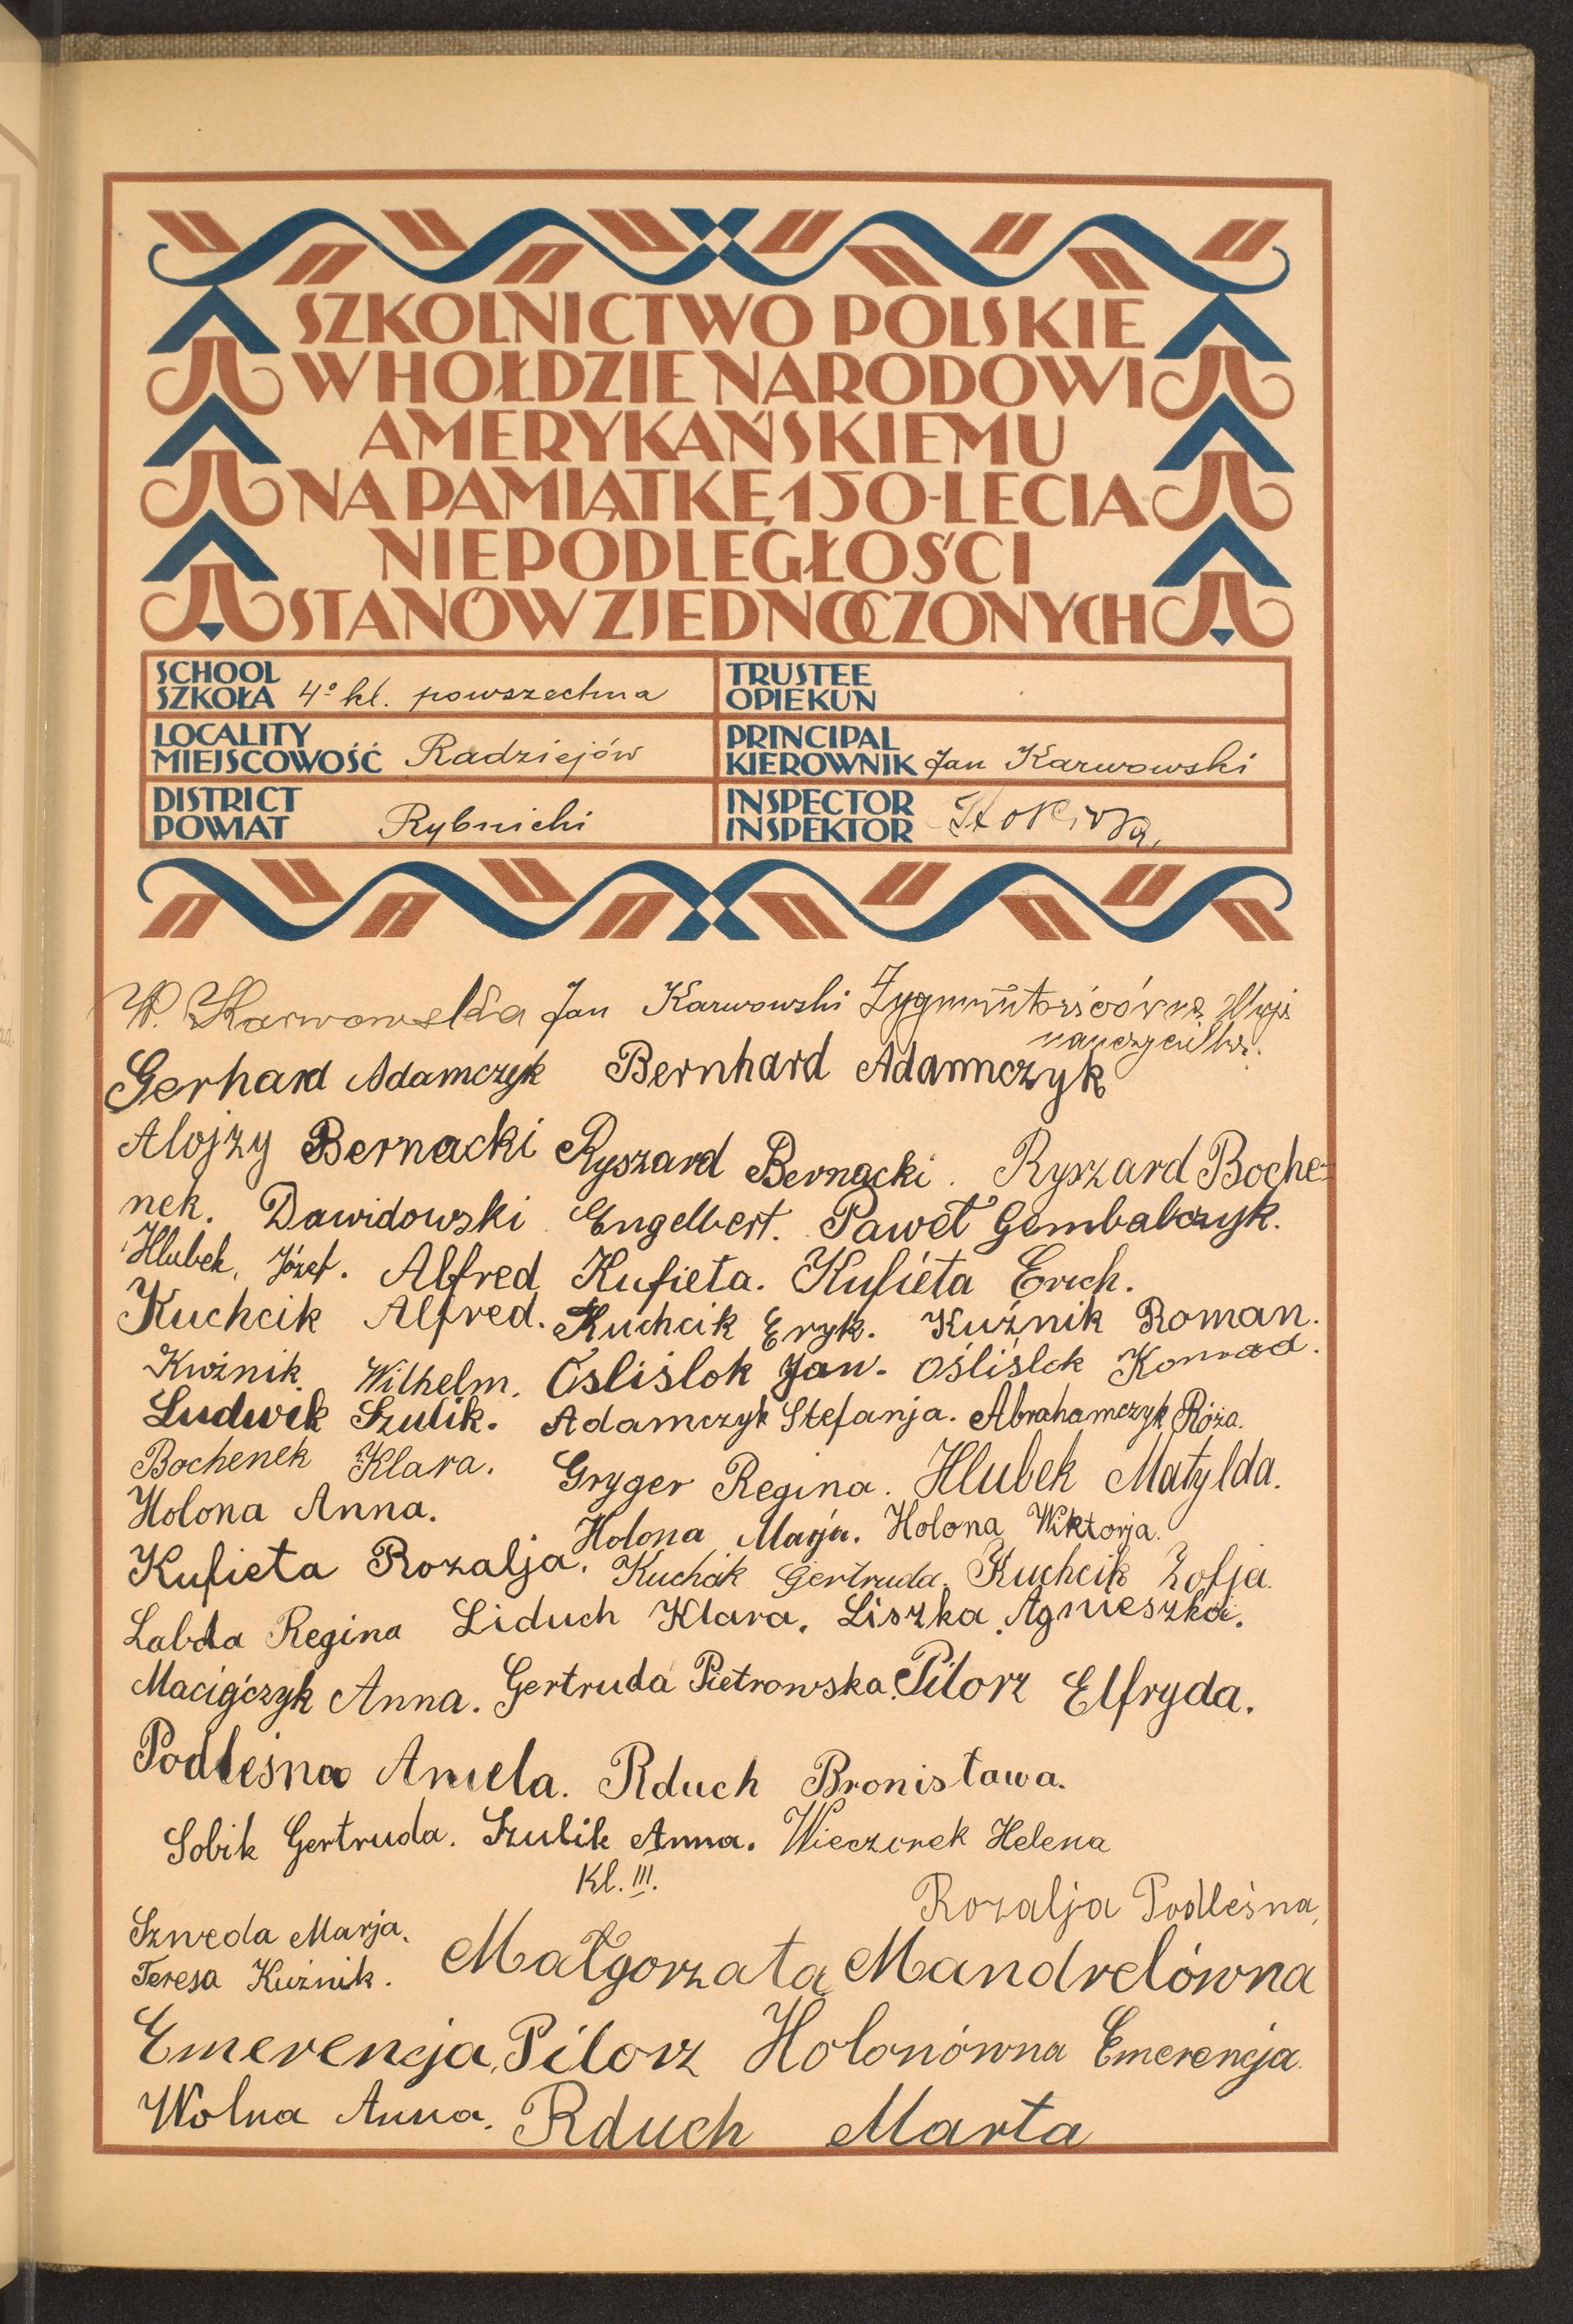 SZKOLNICTWO POLSKIE
W HOŁDZIE NARODOWI
AMERYKAŃSKIEMU
NA PAMIĄTKĘ 150-LECIA
NIEPODLEGŁOŚCI
STANÓW ZJEDNOCZONYCH
SCHOOL
SZKOŁA 4º kl. powszechna
TRUSTEE
OPIEKUN
LOCALITY
MIEJSCOWOŚĆ Radziejów
PRINCIPAL
KIEROWNIK Jan Karwowski
DISTRICT
POWIAT Rybnicki
INSPECTOR
INSPEKTOR
W. Karwowska Jan Karwowski
Gerhard Adamczyk Bernhard Adamczyk
Alojzy Bernacki Ryszard Bernacki. Ryszard Boche-
nek. Dawidowski Engelbert. Paweł Gembalczyk.
Hlubek, Józef. Alfred Kufieta. Kufieta Erich.
Kuchcik Alfred. Kuchcik Eryk. Kuźnik Roman.
Kuźnik Wilhelm. Ośliślok Jan. Ośliślok Konrad.
Ludwik Szulik. Adamczyk Stefanja. Abrahamczyk Róża.
Bochenek Klara. Gryger Regina. Hlubek Matylda.
Holona Anna. Holona Marja. Holona Wiktorja.
Kufieta Rozalja. Kuchcik Gertruda. Kuchcik Zofja.
Labda Regina Liduch Klara. Liszka Agnieszka.
Anna. Gertruda Pietrowska. Pilorz Elfryda.
Podleśna Aniela. Rduch Bronisława.
Sobik Gertruda. Szulik Anna. Wieczorek Helena
Kl. III.
Rozalja Podleśna,
Szweda Marja.
Teresa Kuźnik. Małgorzata Mandrelówna
Emerencja Pilorz Holonówna Emerencja.
Wolna Anna. Rduch Marta